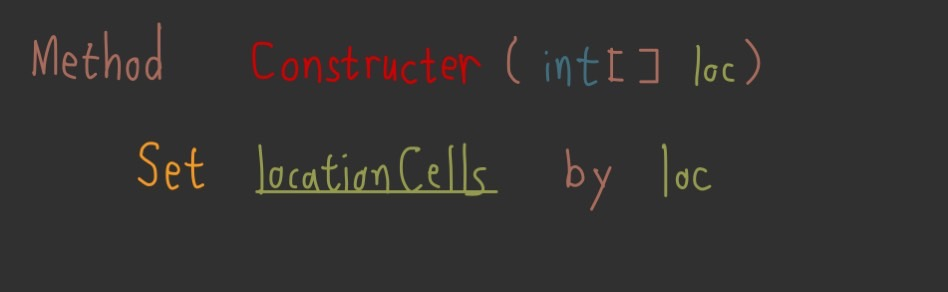 Method Constructer ( int[] loc)
Set locationCells by loc